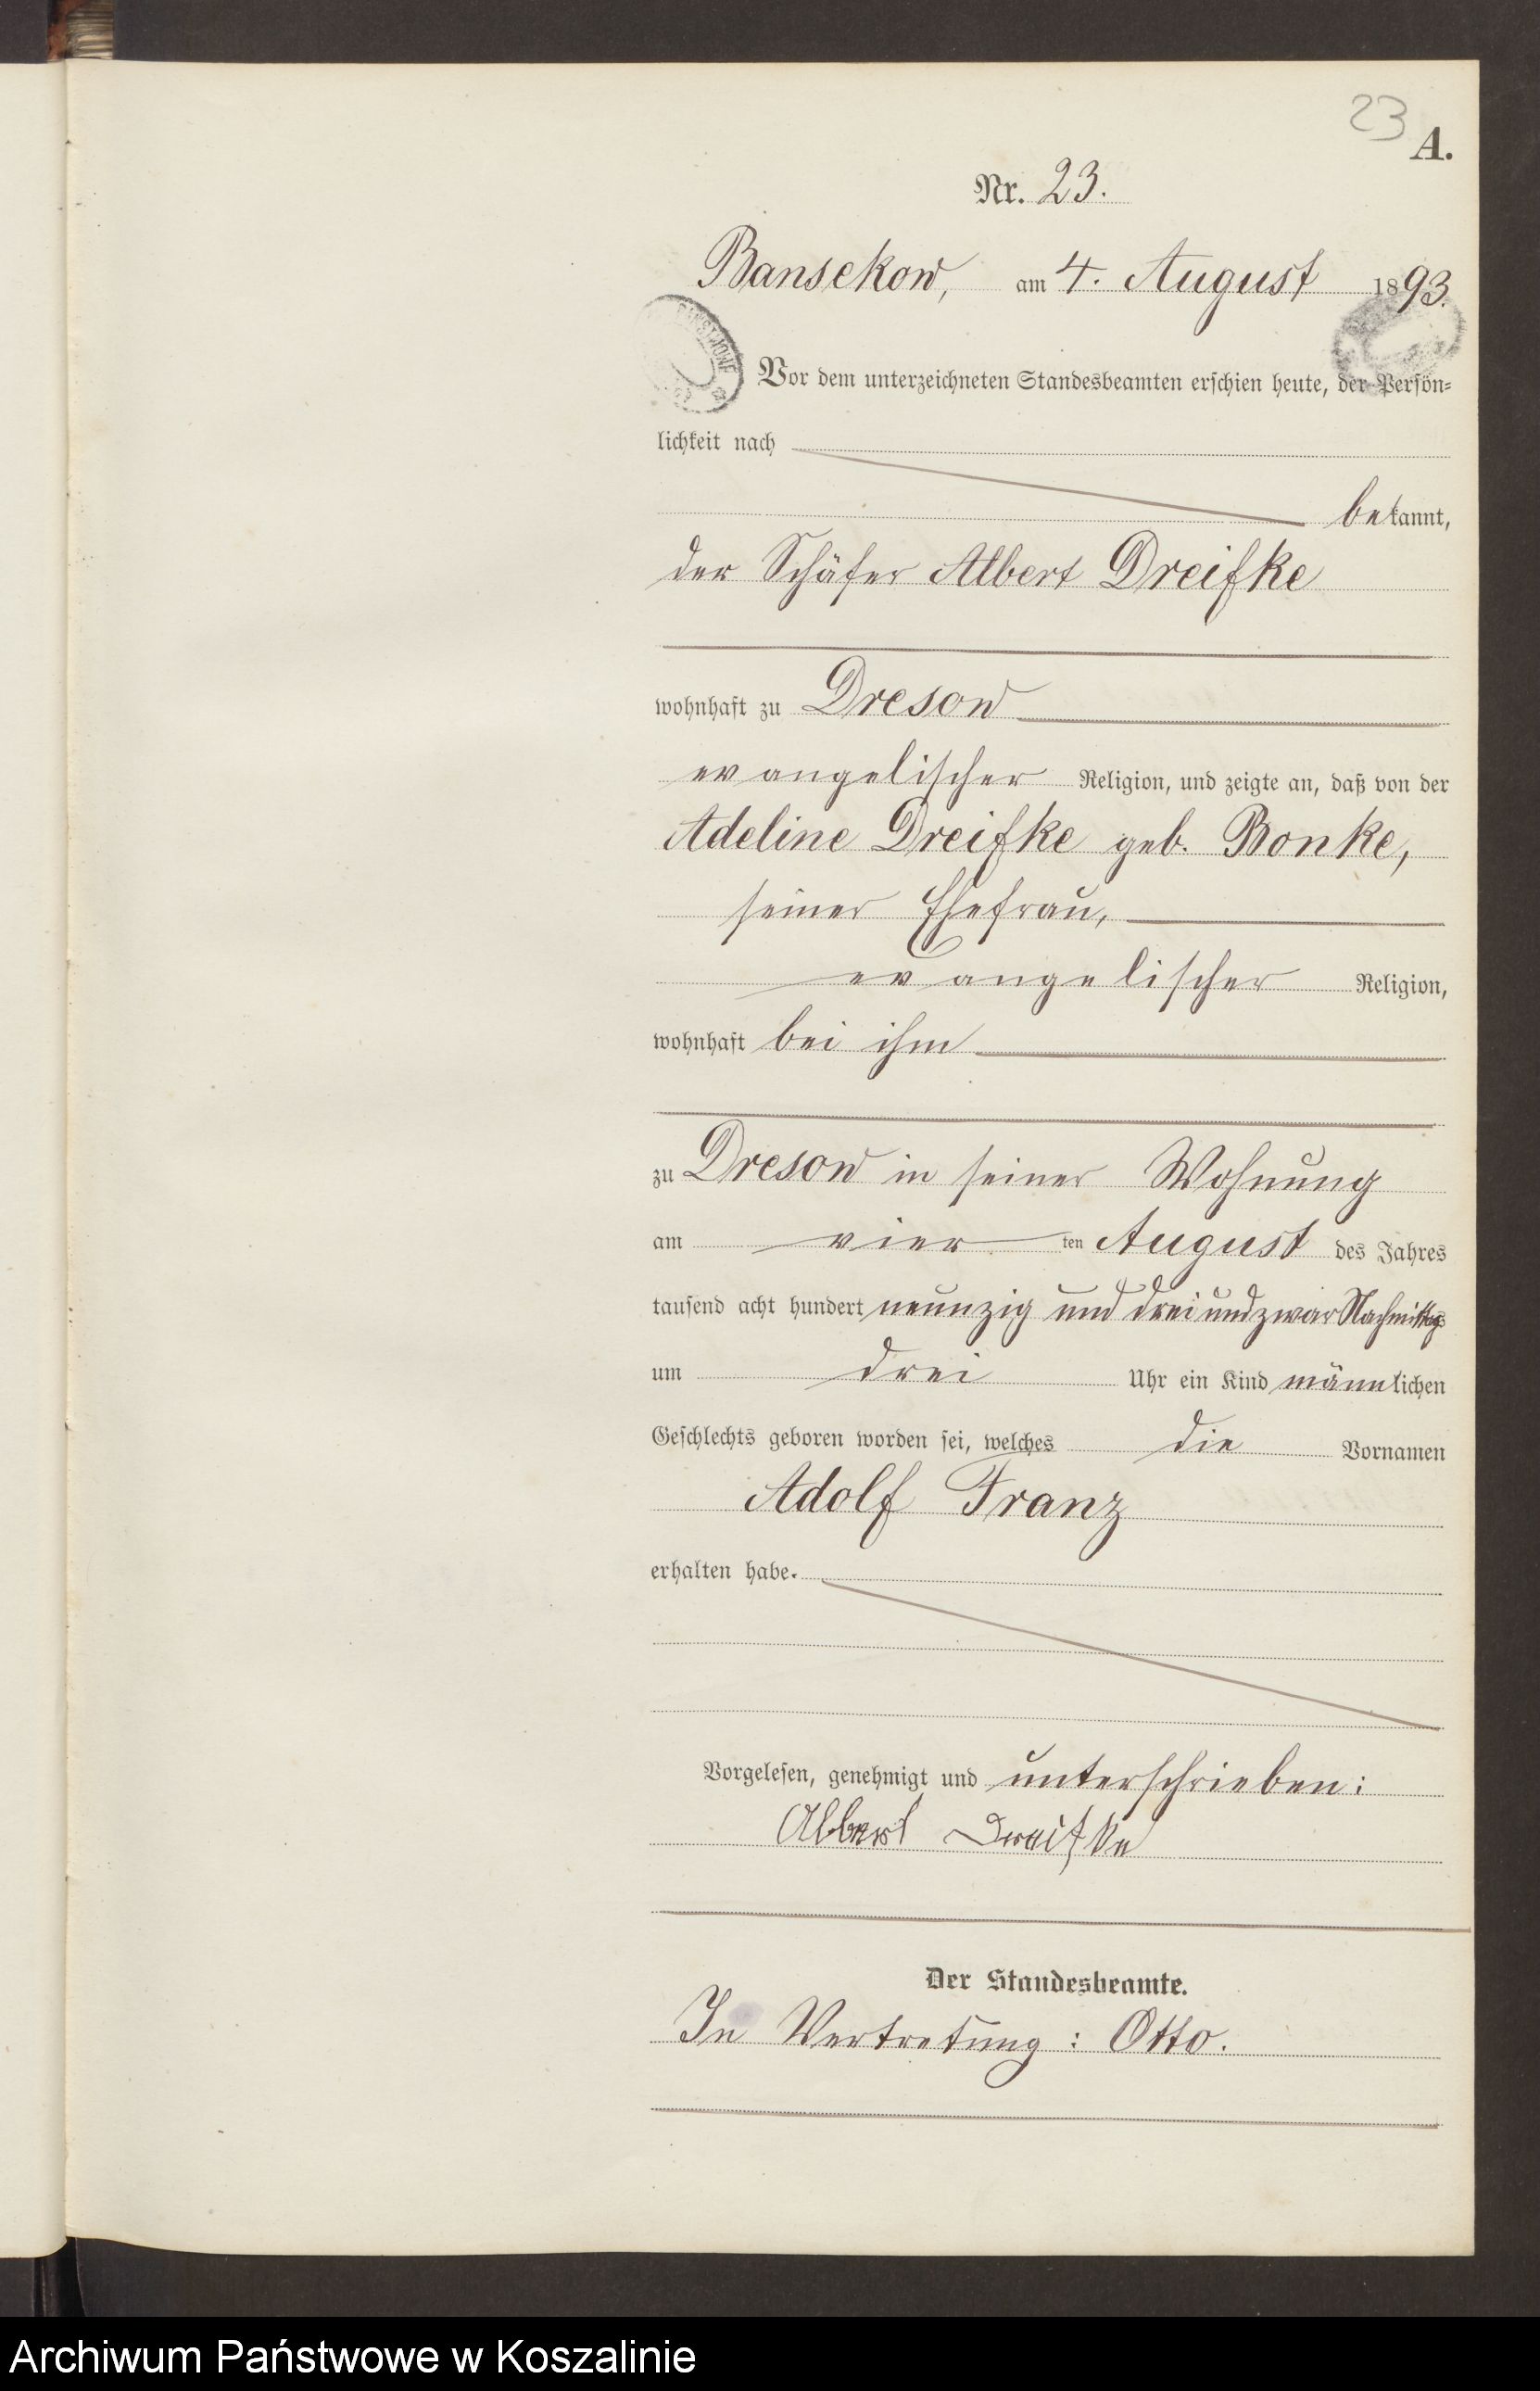 23
A.
Nr. 23.
Bansekow, am 4. August 1893.
Vor dem unterzeichneten Standesbeamten erschien heute, der Persön=
lichkeit nach
bekannt,
der Schäfer Albert Dreifke
wohnhaft zu Dresow
evangelischer Religion, und zeigte an, daß von der
Adeline Dreifke geb. Bonke,
seiner Ehefrau,
evangelischer Religion,
wohnhaft bei ihm
zu Dresow in seiner Wohnung
am vier ten August des Jahres
tausend acht hundert neunzig und drei und zwar Nachmittags
um drei Uhr ein Kind männlichen
Geschlechts geboren worden sei, welches die Vornamen
Adolf Franz
erhalten habe.
Vorgelesen, genehmigt und unterschrieben:
Albert Dreifke
Der Standesbeamte.
In Vertretung: Otto.
Archiwum Państwowe w Koszalinie